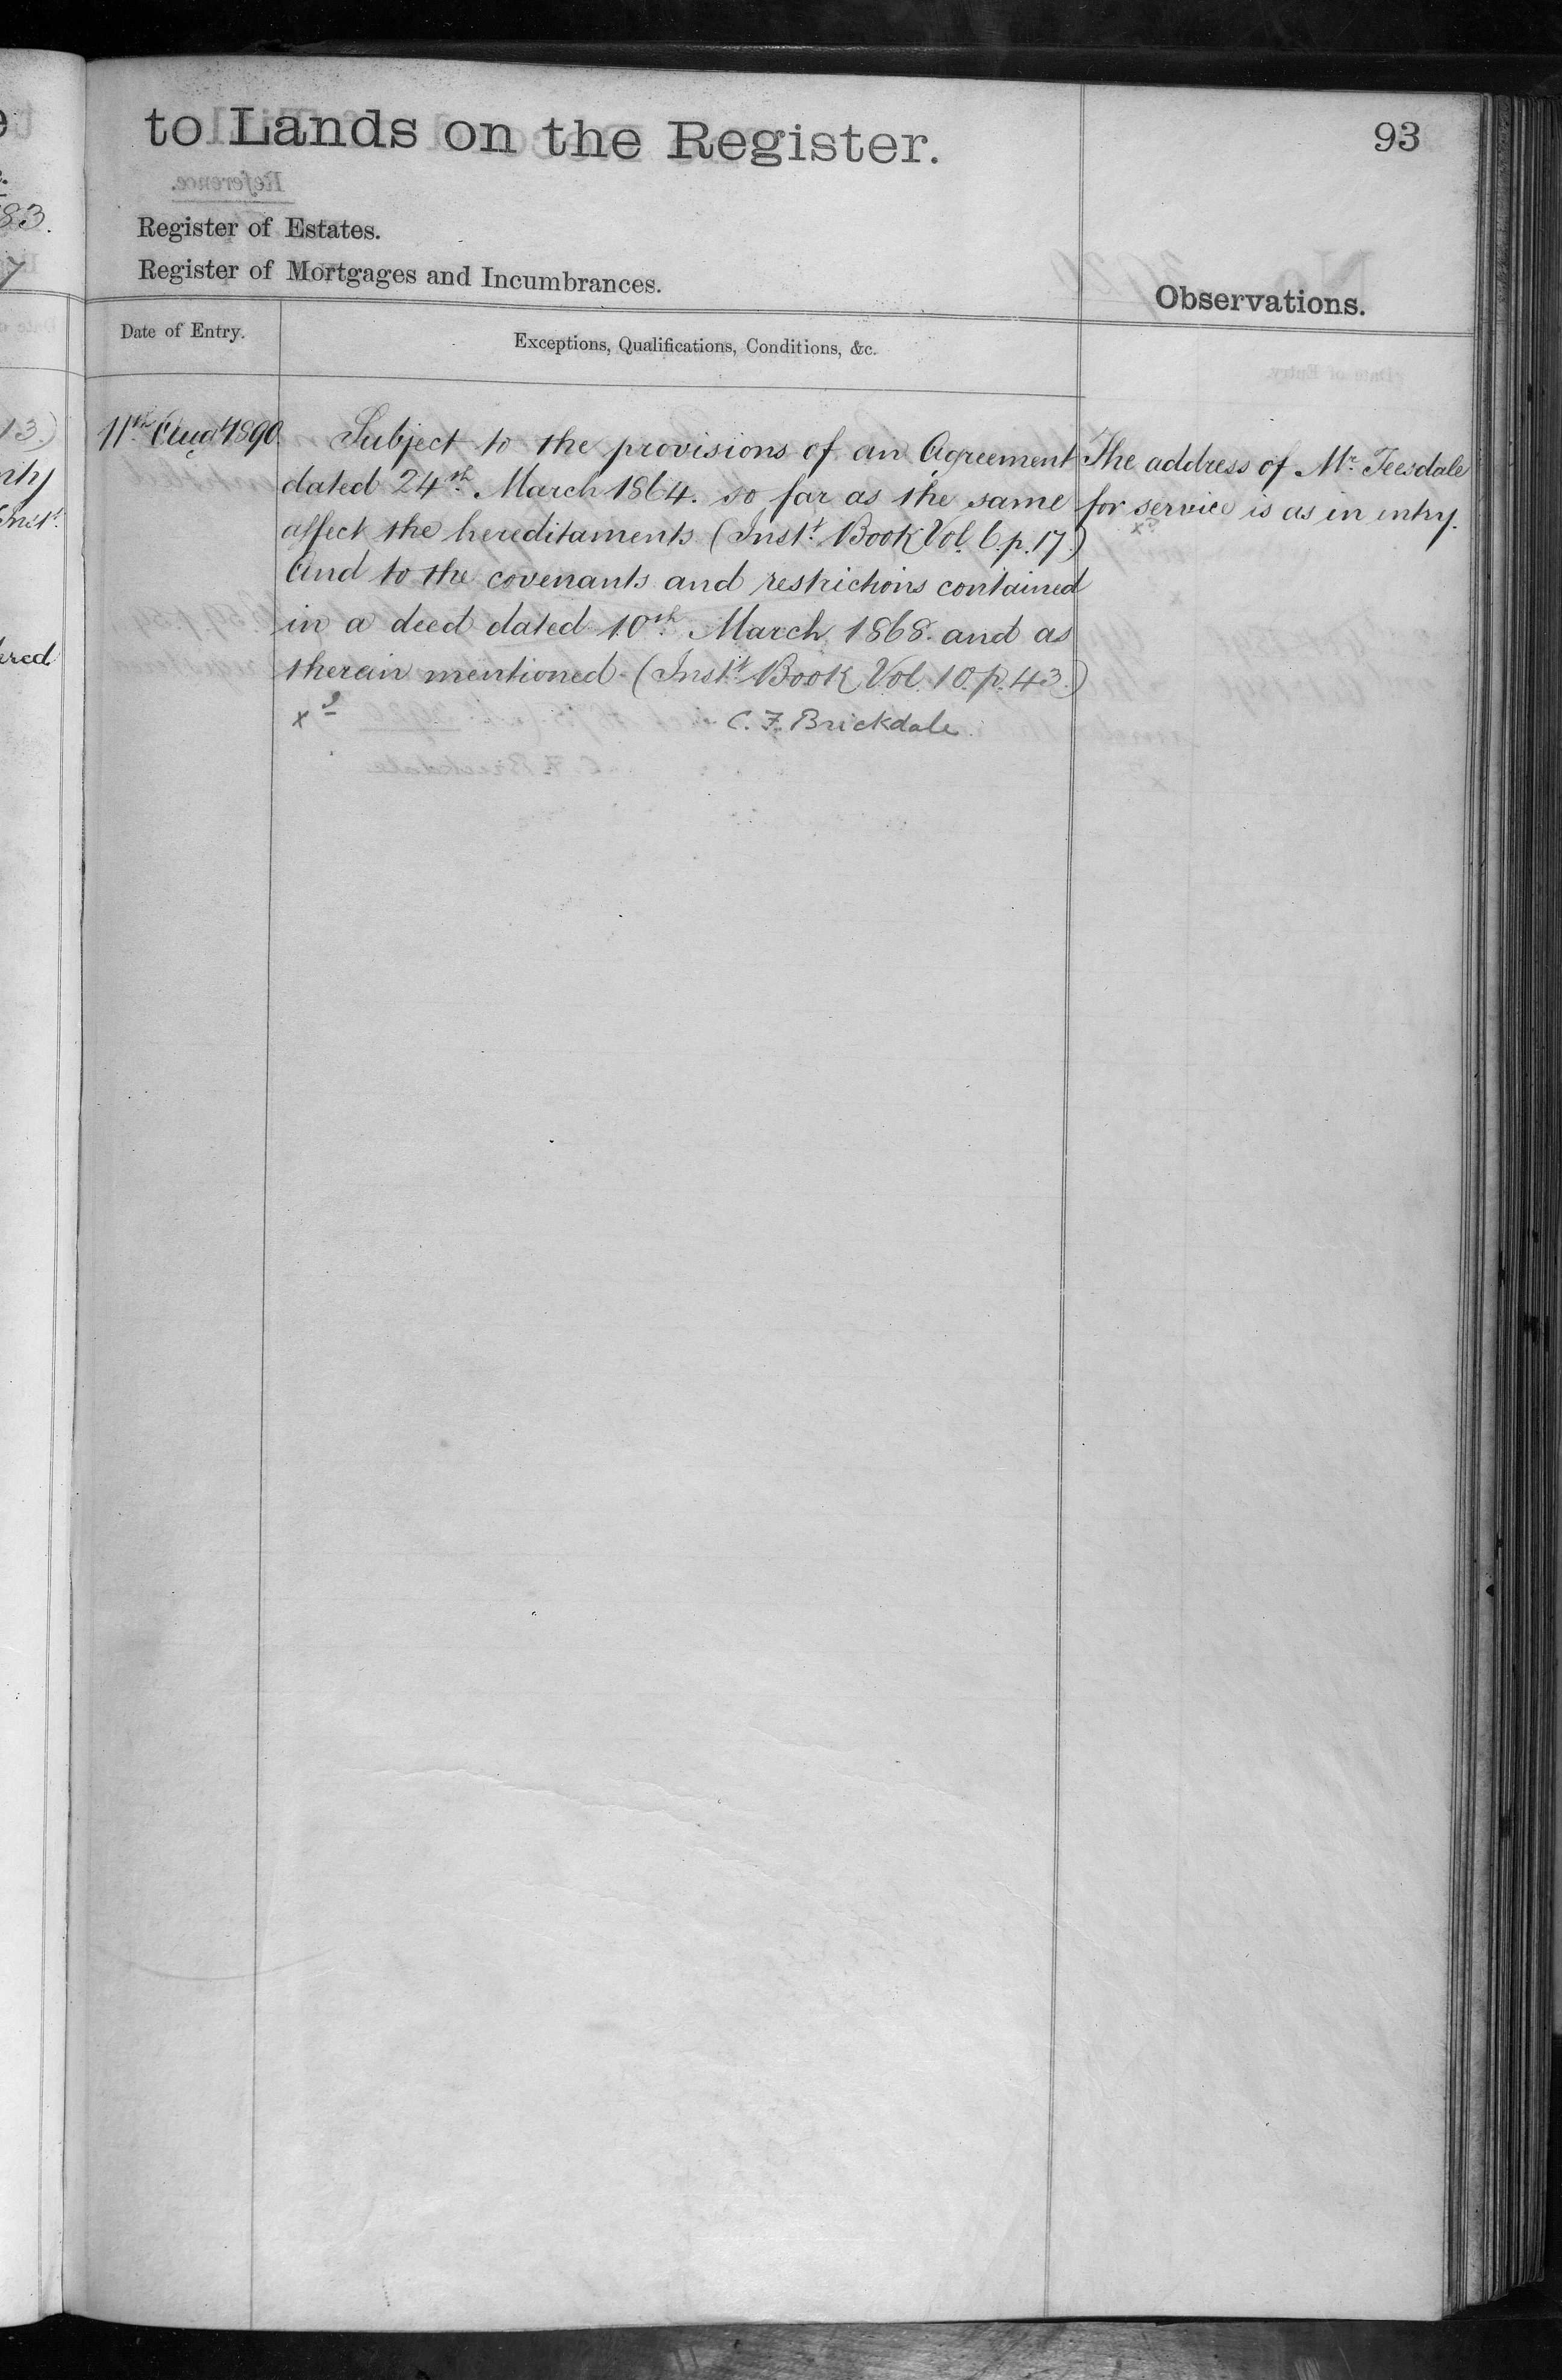 to Lands on the Register.
93
Register of Estates.
Register of Mortgages and Incumbrances.
Observations.
Date of Entry.
Exceptions, Qualifications, Conditions, &c.
11th Augt 1890
Subject to the provisions of an Agreement
dated 24th March 1864. so far as the same
affect the hereditaments (Inst.t Book Vol. 6. p. 17.)
And to the covenants and restrictions contained
in a deed dated 10th March 1868. and as
therein mentioned - (Inst.t Book Vol. 10. p. 43.)
xd
C. F. Brickdale
The address of Mr Teesdale
for service is as in entry.
xd
83.
7
13.)
Inst.